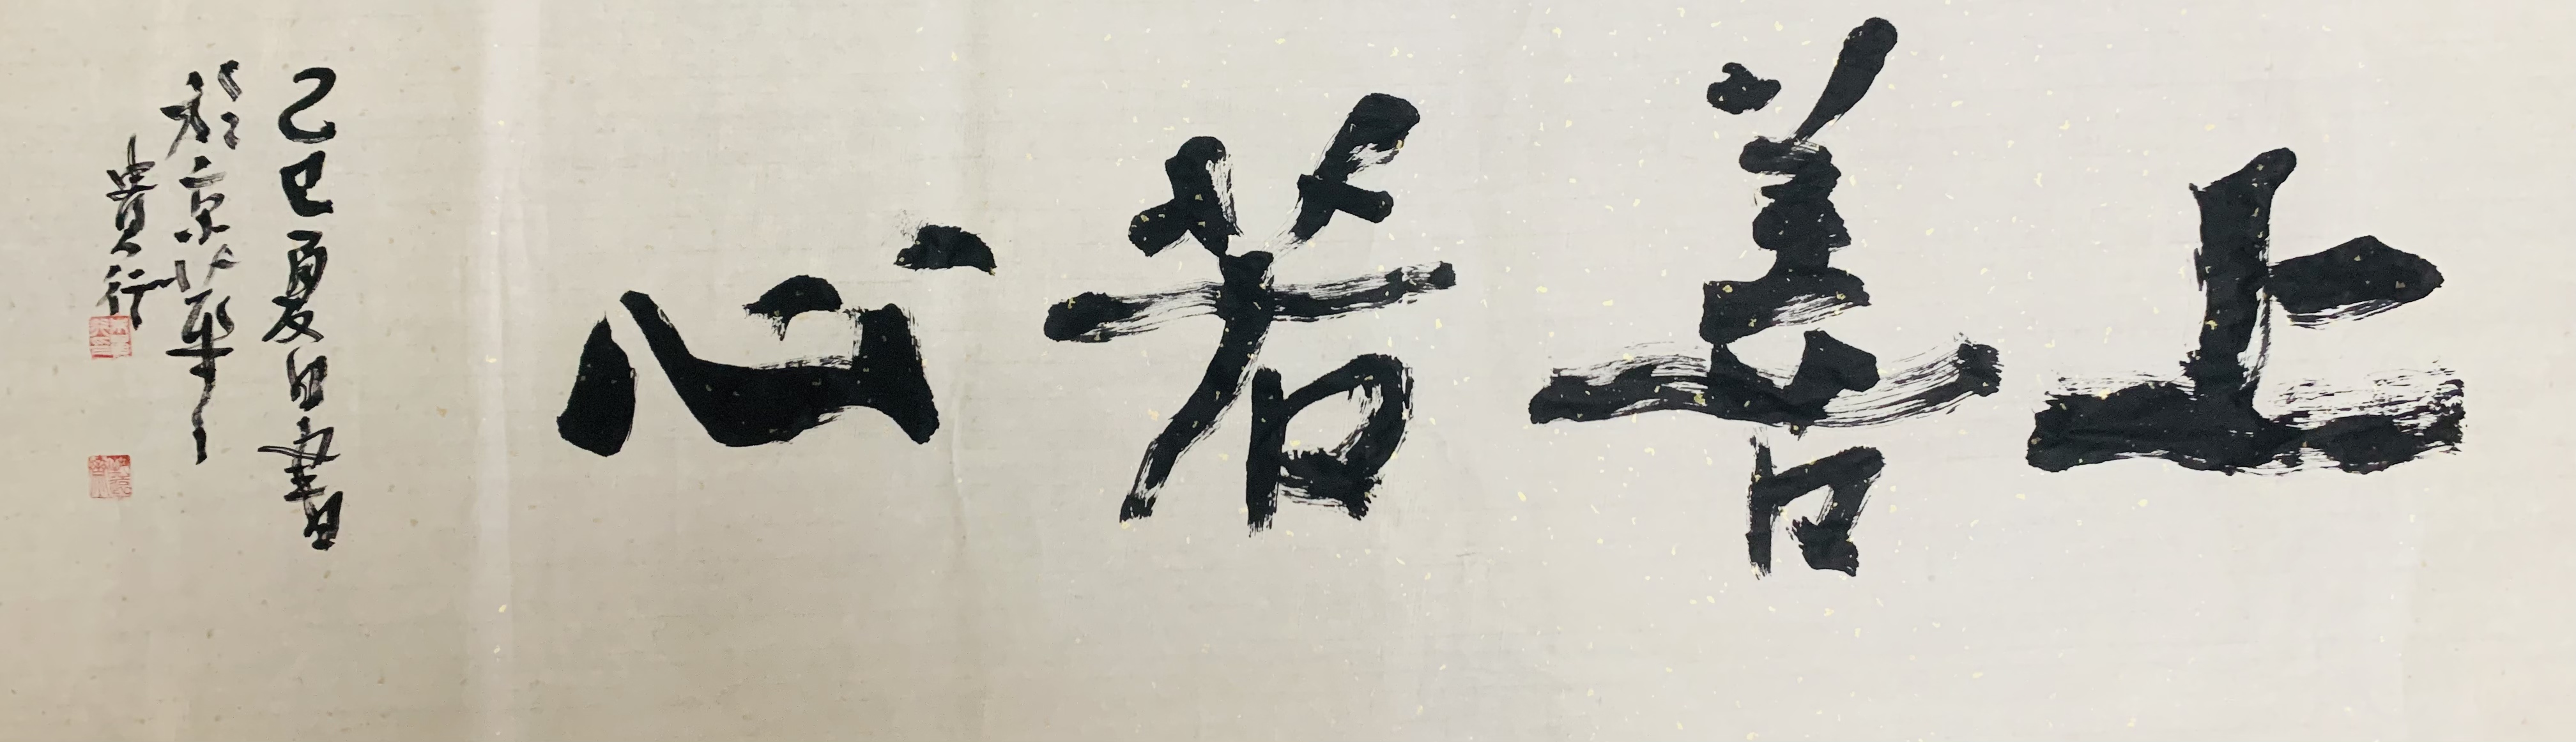 上善若心
乙巳夏日書
於京華
貴行